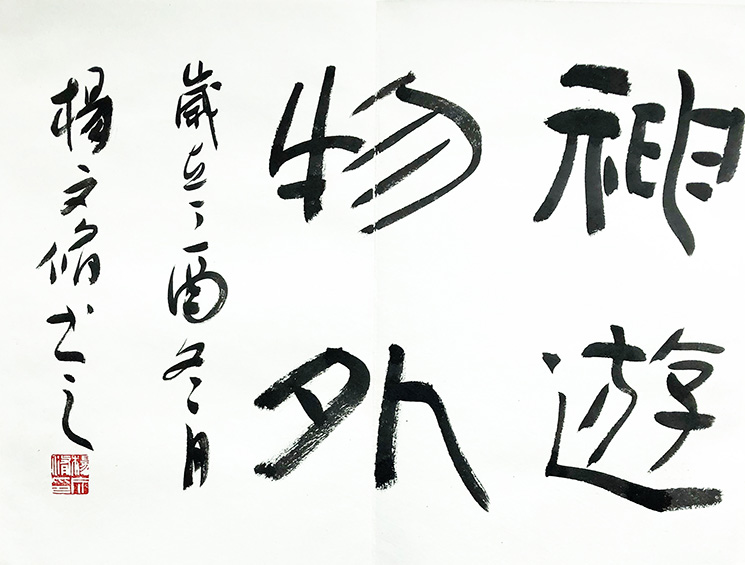 神遊
物外
歲在丁酉冬月
楊文脩書之